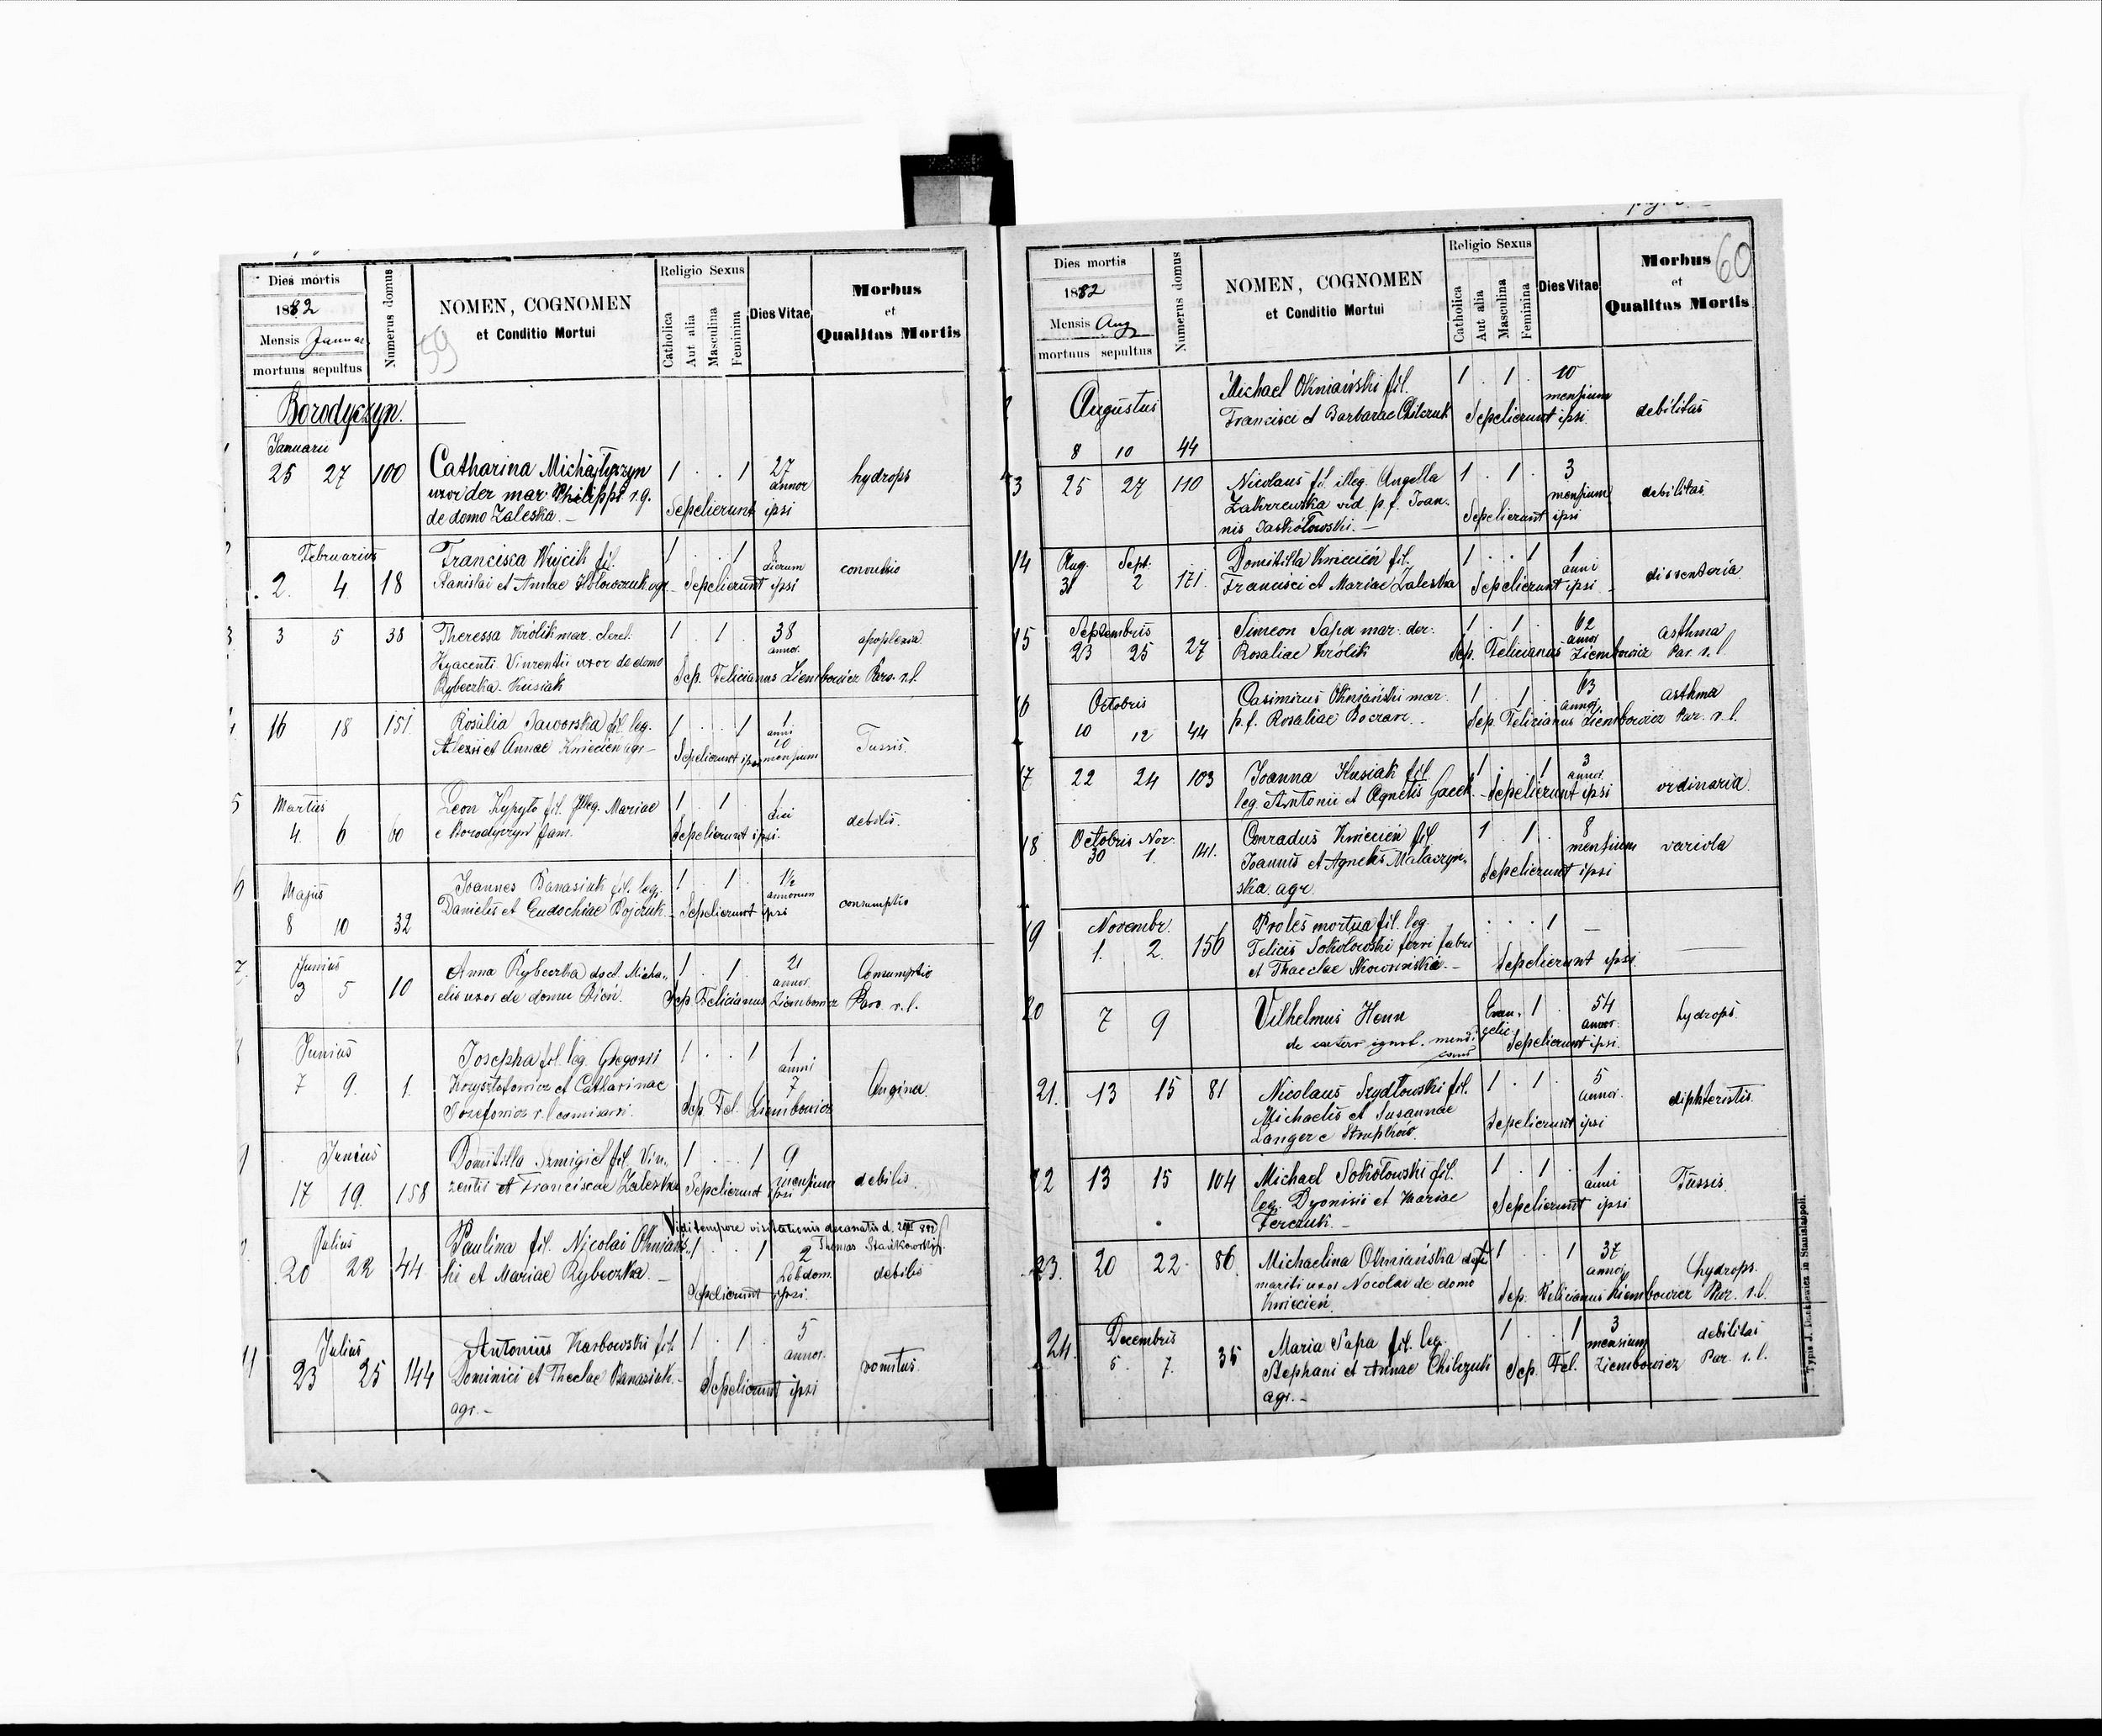 59
Dies mortis
1882
Mensis Januar.
mortuus sepultus
Numerus domus
NOMEN, COGNOMEN
et Conditio Mortui
Religio Sexus
Catholica
Aut alia
Masculina
Feminina
Dies Vitae
Morbus
et
Qualitas Mortis
Borodyczyn.
Januarii
25 27 100 Catharina Michajłyszyn 1 . . 1 27 annor hydrops
uxor der mar Philippi r.g. Sepelierunt ipsi
de domo Zaleska. –
Februarius
2. 4 18 Francisca Wujcik fil. 1 . . 1 8 dierum convulsio
Stanislai et Annae Hołowczuk agr. – Sepelierunt ipsi
3 3 5 38 Theressa Królik mar. derel. 1 . 1 . 38 annor. apoplexia
Hyacenti Vinzentii uxor de domo
Rybeczka Kusiak Sep. Felicianus Ziembowicz Par. r.l.
16 18 151 Rosalia Jaworska fil. leg. 1 . . 1 1 anni 10 mensium Tussis.
Alexii et Annae Kniecień agr – Sepelierunt ipsi
5 Martius
4. 6 60 Leon Kypyto fil. Illeg. Mariae 1 . 1 1 diei debilis.
e Borodyczyn fam. Sepelierunt ipsi.
6 Majus
8 10 32 Joannes Banasiuk fil. leg. 1 . 1 . 1½ annorum consumptio
Danielis et Eudochiae Bojczuk. – Sepelierunt ipsi
7 Junius
3 5 10 Anna Rybeczka doct. Micha„ 1 . 1 . 21 annor. Consumptio
elis uxor de domu Sep Felicianus Ziembowicz Par. r.l.
8 Junius
7 9. 1. Josepha fil. leg. Gregorii 1 . . 1 1 anni 7 Angina.
Krzysztofowicz et Catharinae
Jozefowicz r.l. Sep. Fel. Ziembowicz
9 Junius
17 19. 158 Domitilla Szmigiel fil. Vin„ 1 . . 1 9 mensium debilis.
zentii et Franciscae Zaleska Sepelierunt ipsi
Vidi tempore visitationis decanatis d.
Thomas Stankowski
Julius
20 22 44 Paulina fil. Nicolai Okniańs„ 1 . . 1 2 hebdom. debilis
ki et Mariae Rybeczka. – Sepelierunt ipsi.
11 Julius
23 25 144 Antonius Karbowski fil. 1 . 1 . 5 annor. vomitus.
Dominici et Theclae Banasiuk. – Sepelierunt ipsi
agr. –
60
Dies mortis
1882
Mensis Aug
mortuus sepultus
Numerus domus
NOMEN, COGNOMEN
et Conditio Mortui
Religio Sexus
Catholica
Aut alia
Masculina
Feminina
Dies Vitae
Morbus
et
Qualitas Mortis
Augustus
8 10 44 Michael Okniański fil. 1 . 1 . 10 mensium debilitas
Francisci et Barbarae Chilczuk Sepelierunt ipsi.
13 25 27 110 Nicolaus fil illeg. Angella 1 . 1 . 3 mensium debilitas.
Zakrzewska vid p.f. Joan„
nis Jaskółowski. – Sepelierunt ipsi
14 Aug. Sept.
31 2 171. Domitilla Kniecień fil. 1 . . 1 1 anni dissenteria
Francisci et Mariae Zaleska Sepelierunt ipsi –
15 Septembris
23 25 27 Simeon Sapa mar. der. 1 . 1 . 62 annor. asthma
Rosaliae Królik Sep. Felicianus Ziembowicz Par. r.l.
16 Octobris
10 12 44 Casimirus Okniański mar. 1 . 1 . 63 annor. asthma
p.f. Rosaliae Boczar. Sep. Felicianus Ziembowicz Par. r.l.
17 22 24 103 Joanna Kusiak fil. 1 . . 1 3 annor. ordinaria.
leg. Antonii et Agnetis Gacek. – Sepelierunt ipsi
18 Octobris Nov.
30 1. 141. Conradus Kniecień fil. 1 . 1 . 8 mensium variola
Joannis et Agnetis Malaczyń„
ska. agr. Sepelierunt ipsi
19 Novembr.
1. 2. 156 Proles mortua fil. leg . . . 1 –
Felicis Sokolowski ferri fabri
et Thaeclae Sepelierunt ipsi.
20 7 9 Vilhelmus Henn Evan„gelic. 1 . 54 annor. hydrops.
de caetero ignot. mendi
cans Sepelierunt ipsi.
21. 13 15 81 Nicolaus Szydłowski fil. 1 . 1 . 5 annor. diphteritis.
Michaelis et Susannae
Langer e Sepelierunt ipsi
22 13 15 104 Michael Sokołowski fil. 1 . 1 . 1 anni Tussis.
leg. Dyonisii et Mariae
Ferczuk. – Sepelierunt ipsi
23. 20 22 86. Michaelina Okniańska def. 1 . . 1 37 annor. hydrops.
mariti uxor Nocolai de domo
Kniecień. Sep. Felicianus Ziembowicz Par. r.l.
24. Decembris
5. 7. 35 Maria Sapa fil. leg. 1 . . 1 3 mensium debilitas
Stephani et Annae Chilczuk Sep. Fel. Ziembowicz Par. r.l.
agr. –